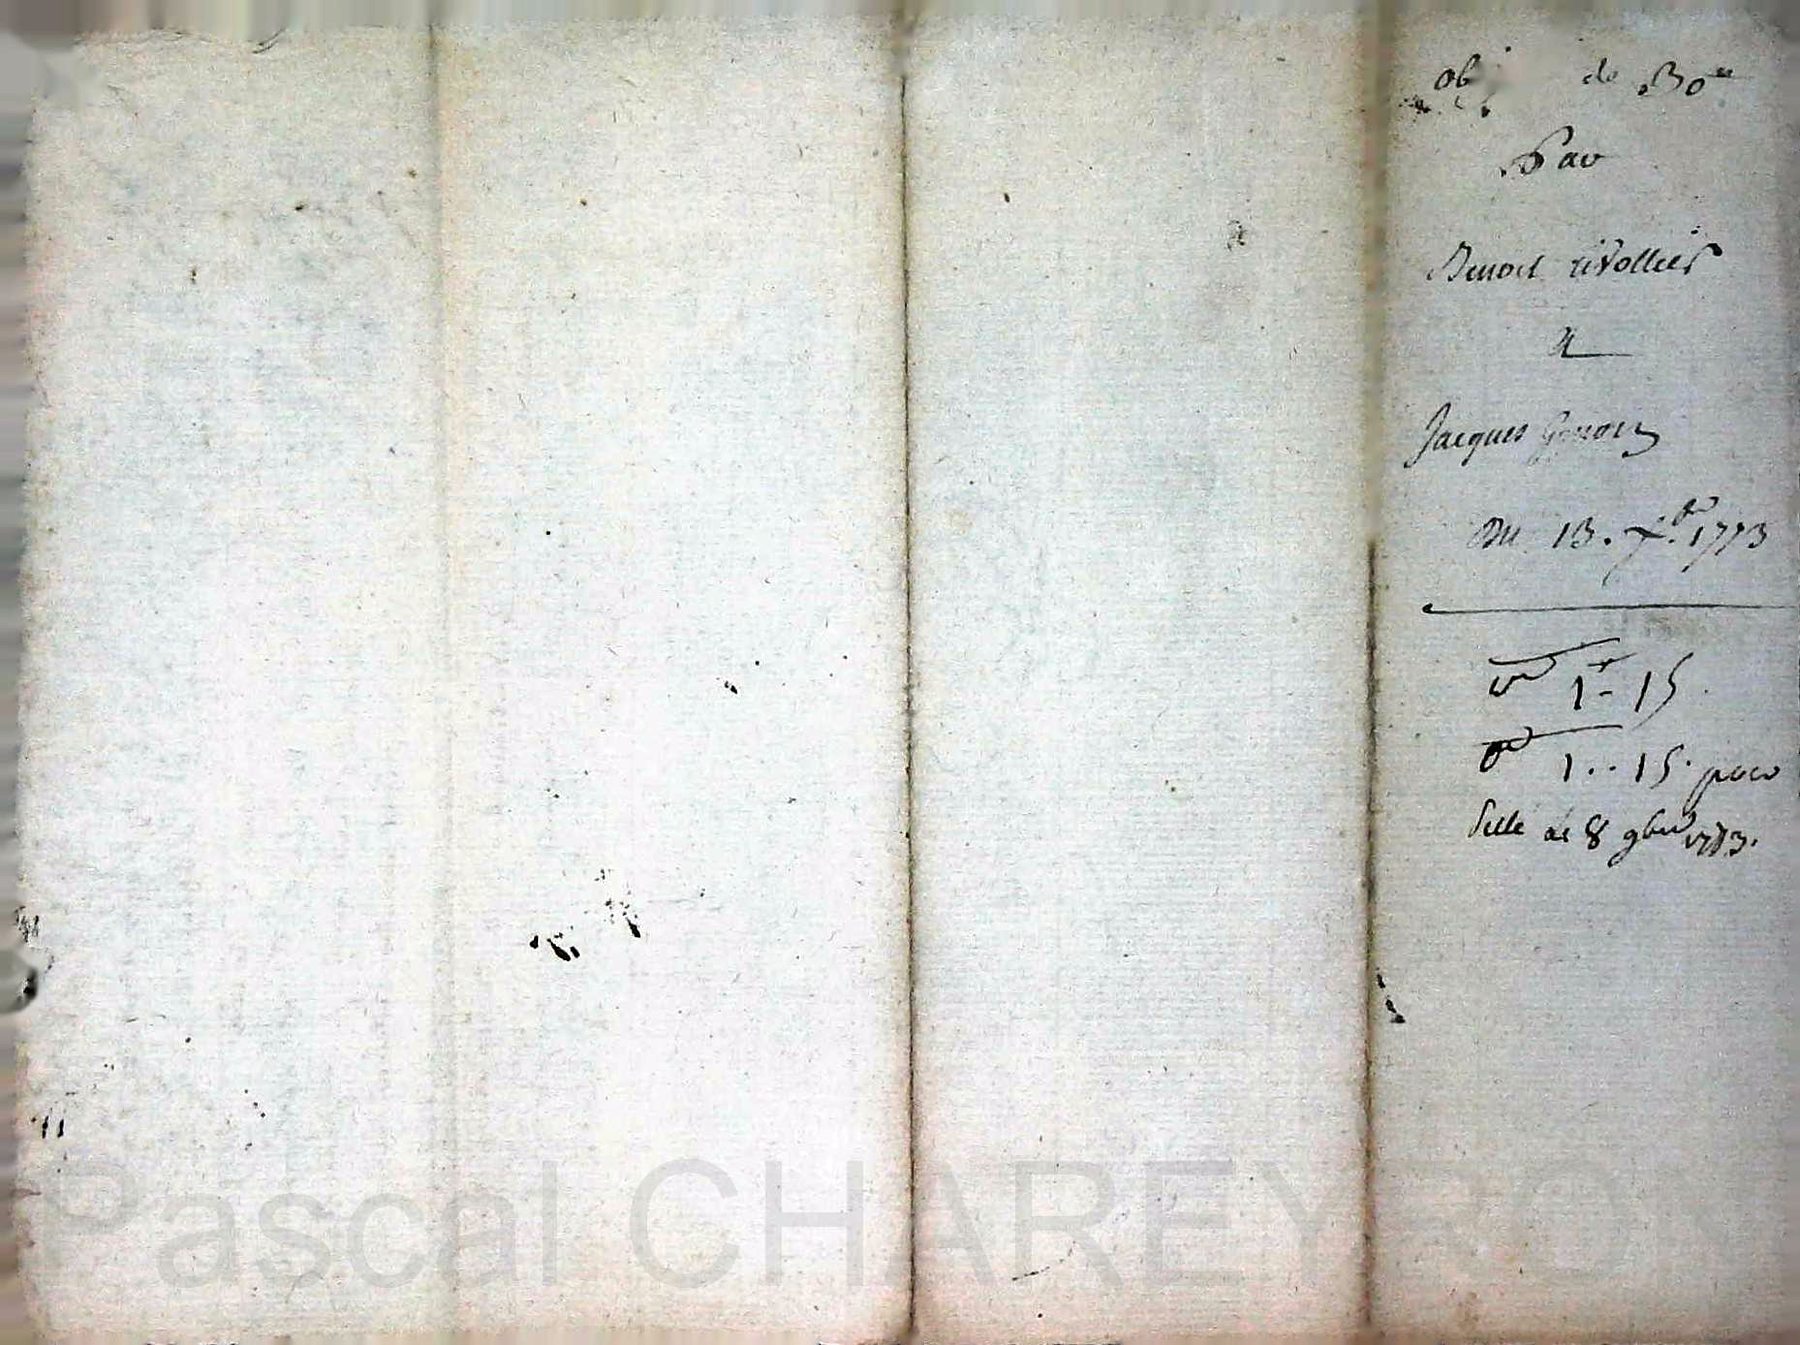 ob de 130#
Par
Benoit rivollier
A
Jacques Genou
Du 13. xbre 1773
1# 15
1.. 15. pour
Celle de 8 9bre 1773.
Pascal CHAREYRON